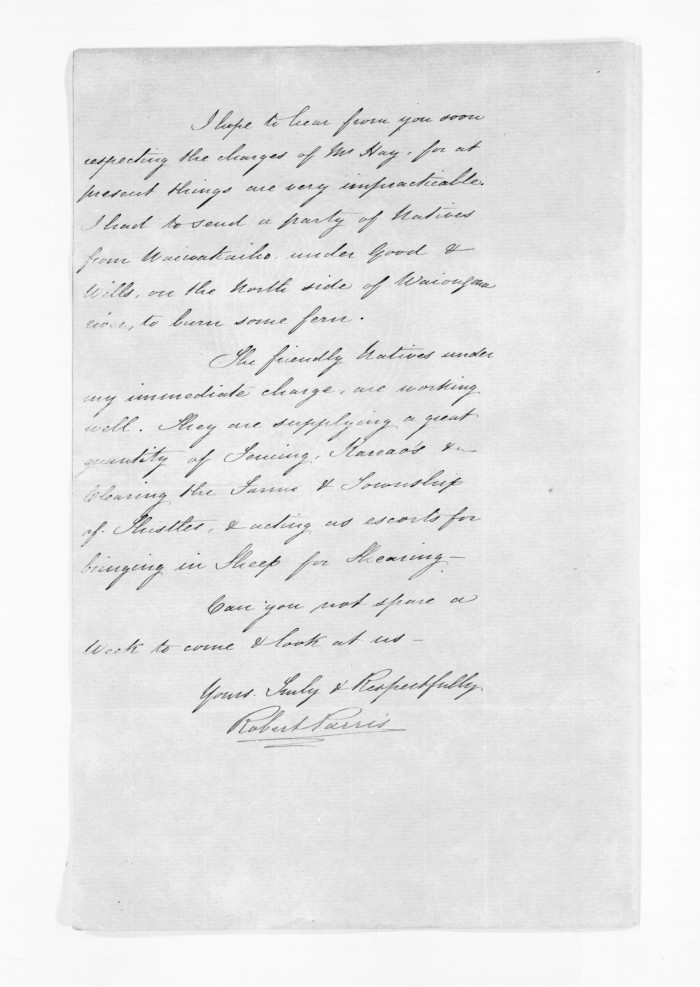 I hope to hear from you soon
respecting the charges of Mr Hay, for at
present things are very impracticable.
I had to send a party of Natives
from Waiwakaiho, under Good &
Wills, on the North side of Waiongona
river, to burn some fern.
The friendly Natives under
my immediate charge, are working
well. They are supplying a great
quantity of Fencing, Kareao's &c
Clearing the Farms & Township
of Thistles, & acting as escorts for
bringing in Sheep for Shearing—
Can you not spare a
Week to come & look at us—
Yours Truly & Respectfully.
Robert Parris